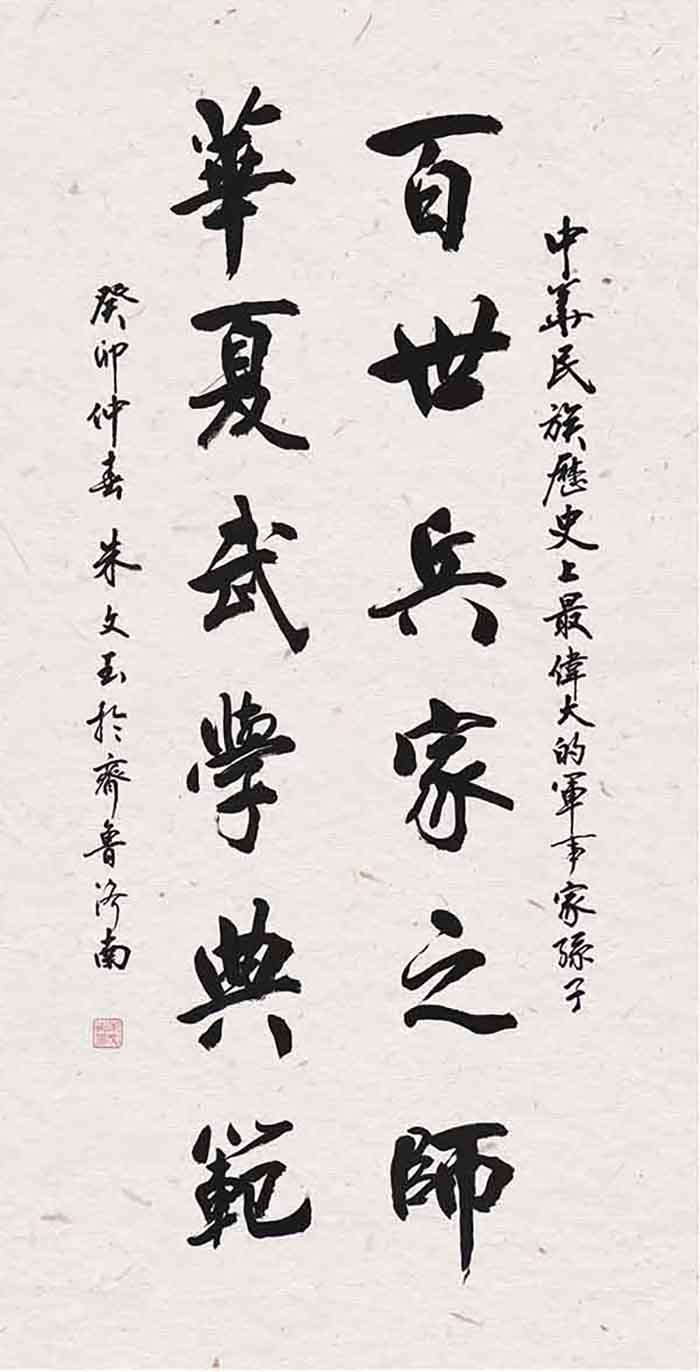 中華民族歷史上最偉大的軍事家孫子
百世兵家之師
華夏武學典範
癸卯仲春 朱文玉於齊魯濟南